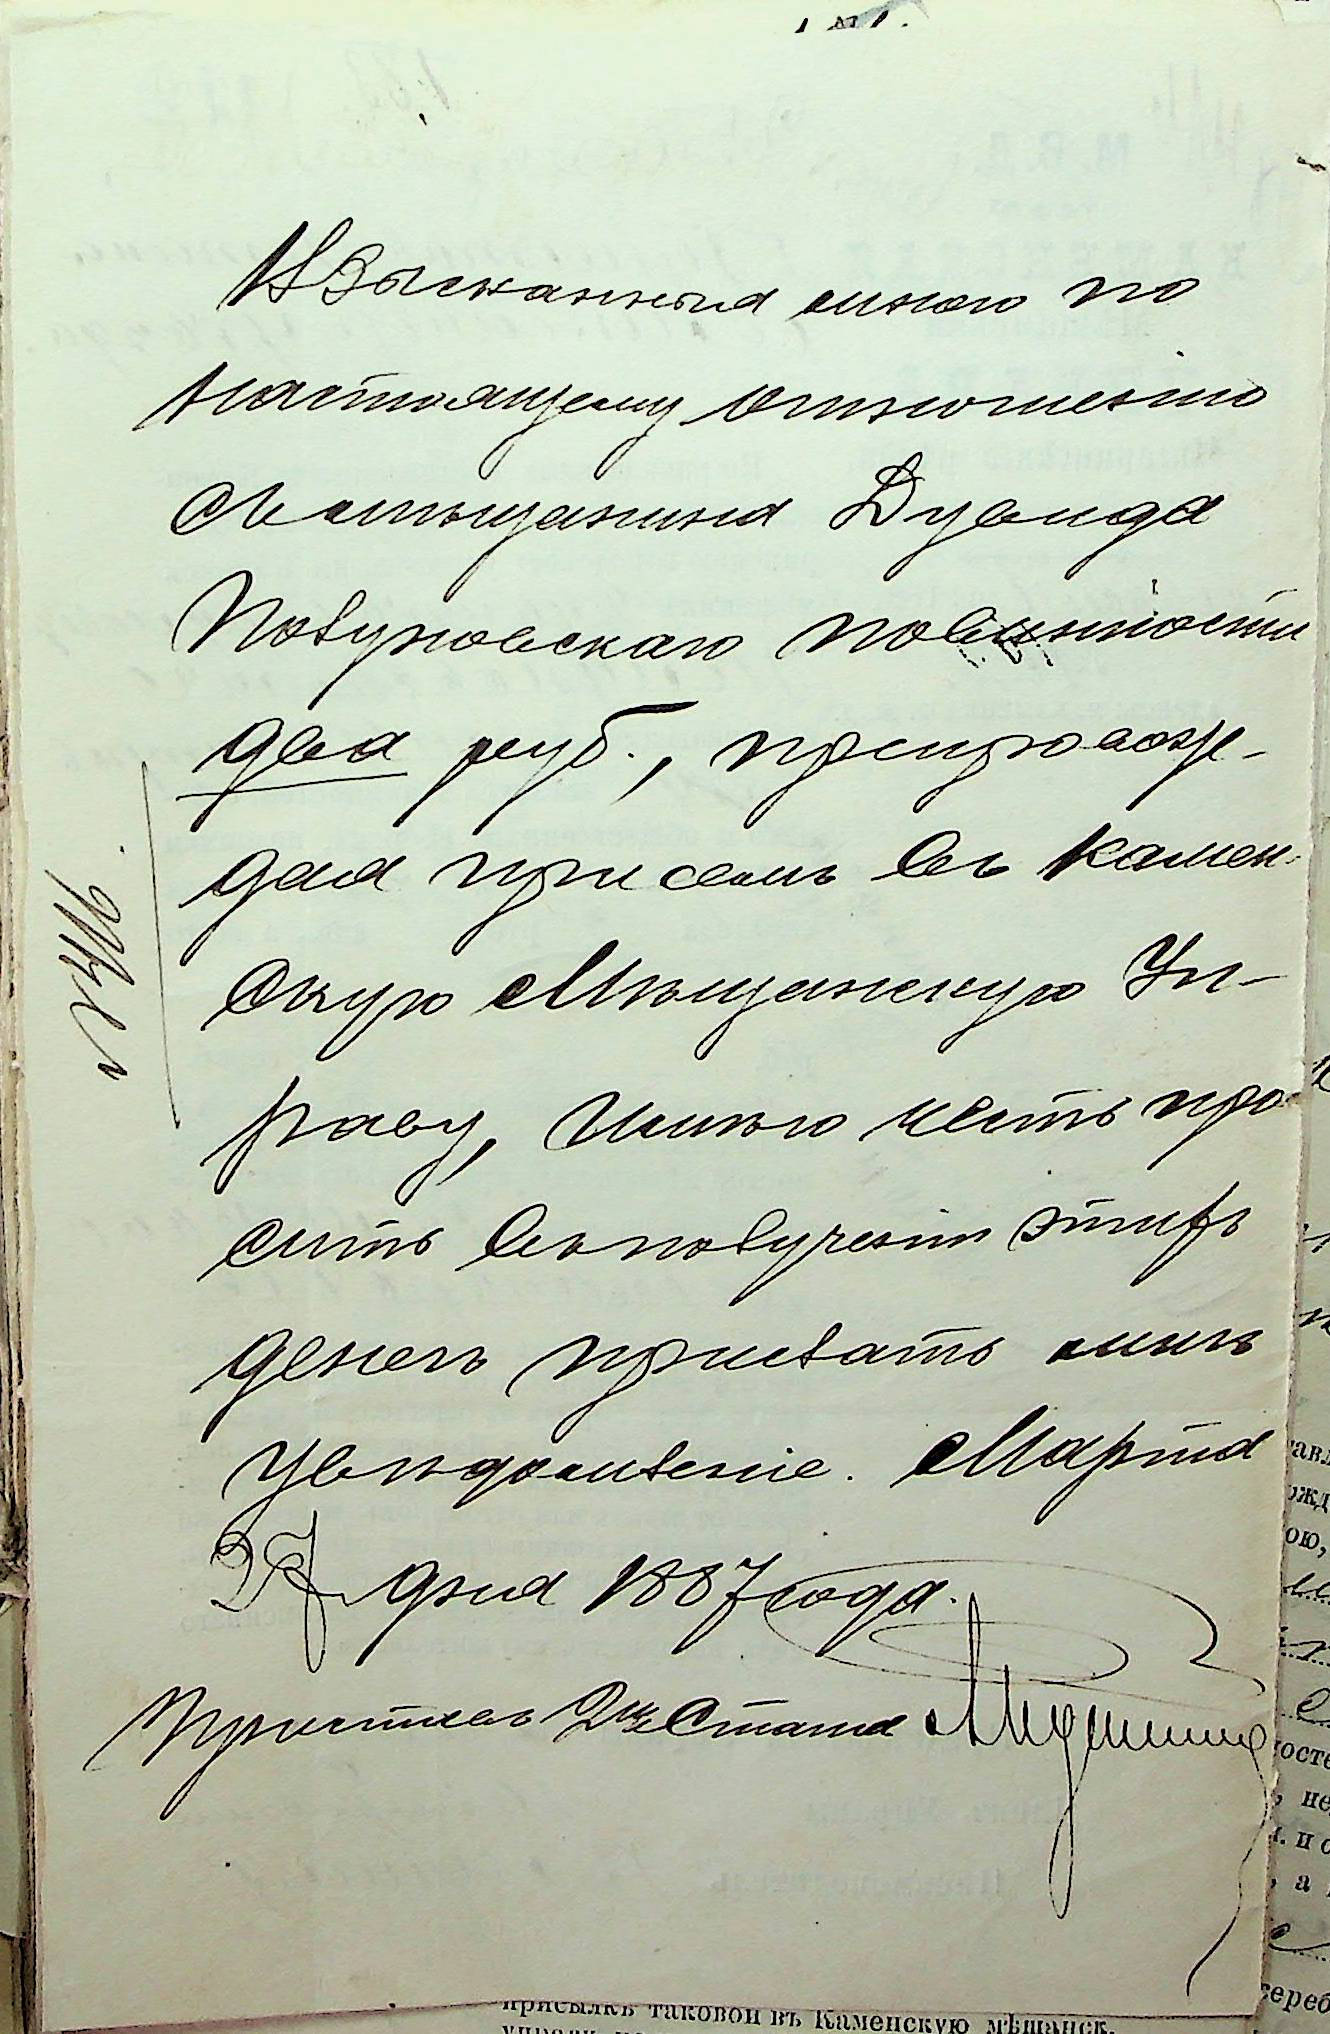 Взысканныя мною по
настоящему отношенію
съ мѣщанина Дувида
повинности
два руб., препровож-
дая при семъ въ Камен-
скую Мѣщанскую Уп-
раву, имѣю честь про-
сить въ полученіи этихъ
денегъ прислать мнѣ
увѣдомленіе. Марта
27 дня 1887 года.
Приставъ 2го Стана
№ 2416
присылкѣ таковой въ Каменскую мѣщанск.